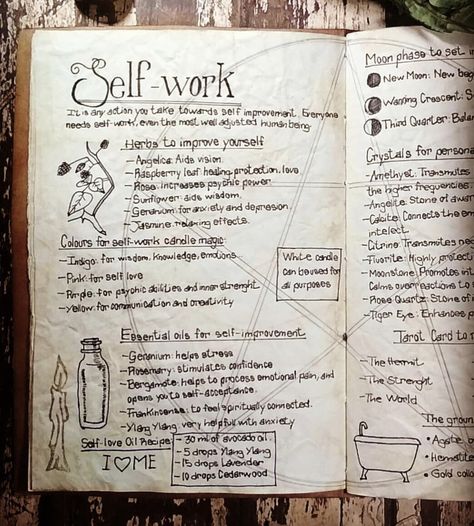 Self-work
It is any action you take towards self improvement. Everyone
needs self-work, even the most well adjusted human being.
Herbs to improve yourself
-Angelica: Aids vision.
-Raspberry leaf: healing, protection, love
-Rose: increases psychic power
-Sunflower: aids wisdom.
-Geranium: for anxiety and depresion.
-Jasmine: relaxing effects.
Colours for self-work candle magic:
-Indigo: for wisdom, knowledge, emotions
-Pink: for self love
-Purple: for psychic abilities and inner strenght
-Yellow: for communication and creativity
White candle
can be used for
all purposes
Essential oils for self-improvement
-Geranium: helps stress
-Rosemary: stimulates confidence
-Bergamote: helps to process emotional pain, and
opens you to self-acceptance.
-Frankincense: to feel spiritually connected.
-Ylang Ylang: very helpful with anxiety
Self-love Oil Recipe:
I ♡ ME
- 30 ml of avocado oil
- 5 drops Ylang Ylang
- 15 drops Lavender
- 10 drops Cedarwood
Moon phase to set i
New Moon: New beg
Waning Crescent: S
Third Quarter: Balan
Crystals for persona
-Amethyst: Transmutes
the higher frequencies
-Angelite: Stone of awar
-Calcite: Connects the e
intelect.
-Citrine: Transmutes ne
-Fluorite: Highly protecti
-Moonstone: Promotes in
Calms overreactions to
-Rose Quartz: Stone of
-Tiger Eye: Enhances p
Tarot Card to r
-The Hermit
-The Strenght
-The World
The groun
• Agate
• Hematite
• Gold